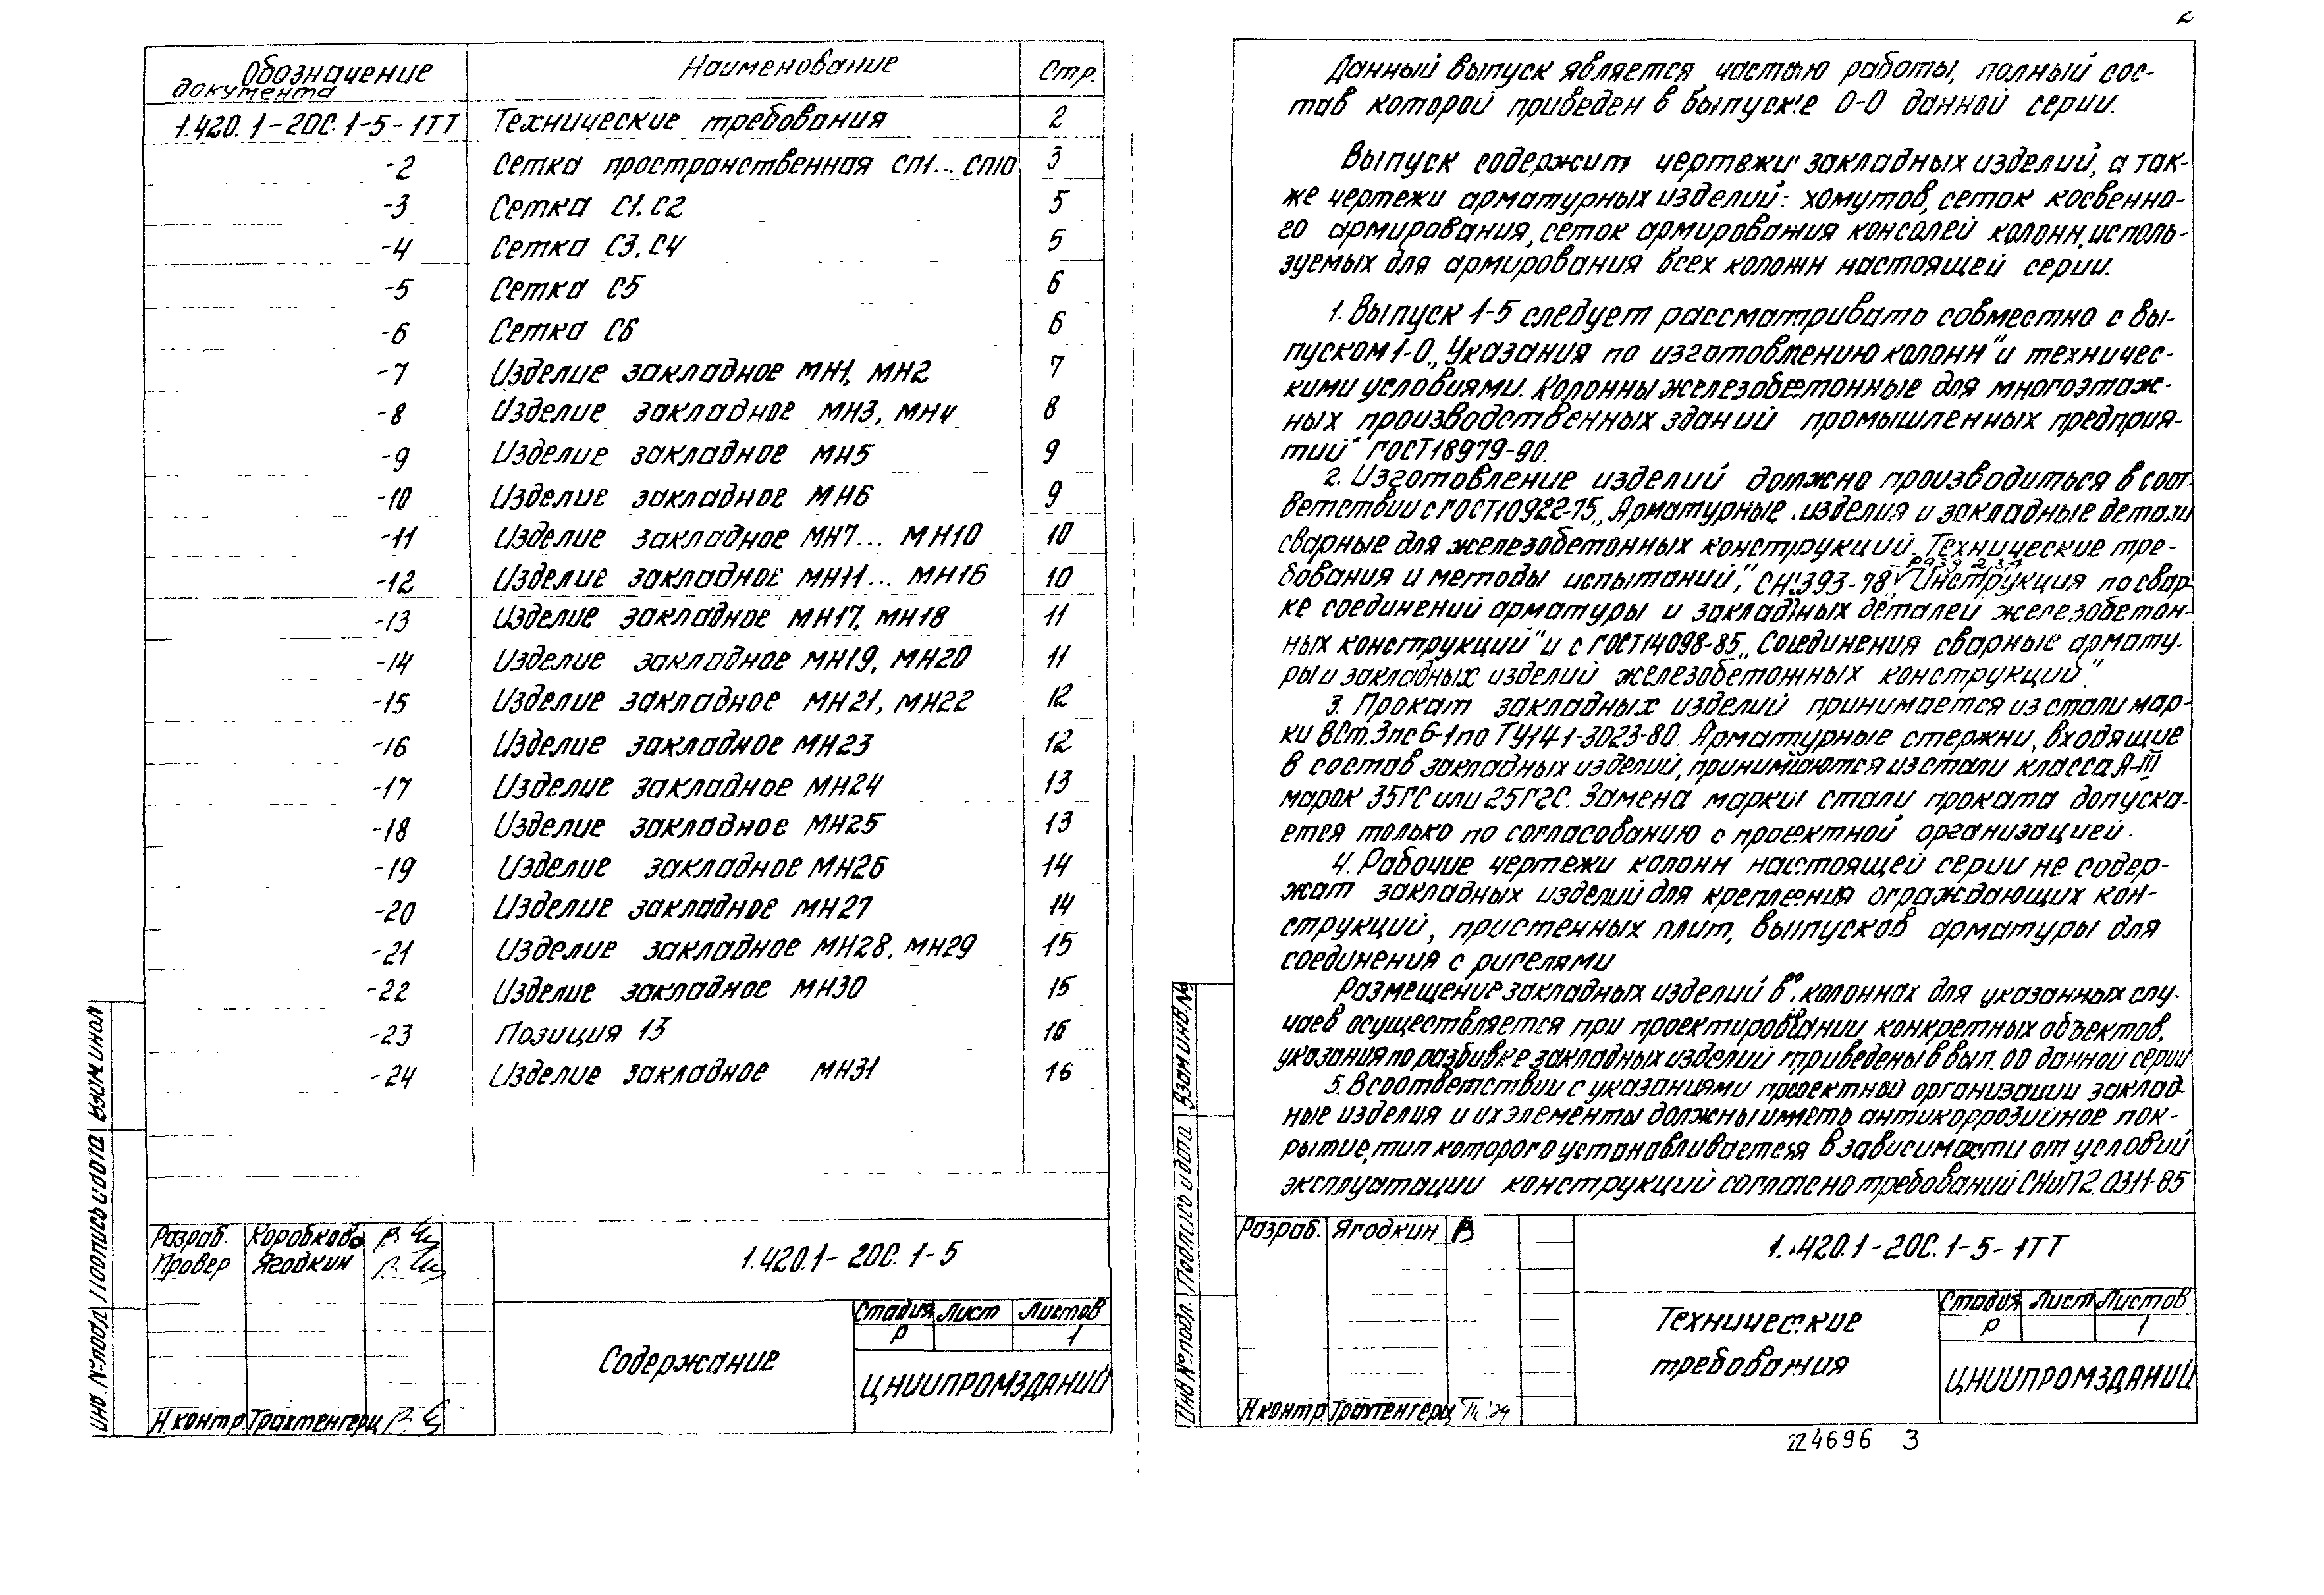 Обозначение документа Наименование Стр.
1.420.1-20С.1-5-1ТТ Технические требования 2
-2 Сетка пространственная СП1...СП10 3
-3 Сетка С1.С2 5
-4 Сетка С3.С4 5
-5 Сетка С5 6
-6 Сетка С6 6
-7 Изделие закладное МН1, МН2 7
-8 Изделие закладное МН3, МН4 8
-9 Изделие закладное МН5 9
-10 Изделие закладное МН6 9
-11 Изделие закладное МН7... МН10 10
-12 Изделие закладное МН11... МН16 10
-13 Изделие закладное МН17, МН18 11
-14 Изделие закладное МН19, МН20 11
-15 Изделие закладное МН21, МН22 12
-16 Изделие закладное МН23 12
-17 Изделие закладное МН24 13
-18 Изделие закладное МН25 13
-19 Изделие закладное МН26 14
-20 Изделие закладное МН27 14
-21 Изделие закладное МН28, МН29 15
-22 Изделие закладное МН30 15
-23 Позиция 13 16
-24 Изделие закладное МН31 16
Взам инв№
Подпись и дата
Инв. № подл
Разраб. Коробкова
Провер Ягодкин
Н.контр. Трахтенгерц
1.420.1-20С.1-5
Содержание
Стадия Лист Листов
Р 1
ЦНИИПРОМЗДАНИЙ
2
Данный выпуск является частью работы, полный сос-
тав которой приведен в выпуске 0-0 данной серии.
Выпуск содержит чертежи закладных изделий, а так-
же чертежи арматурных изделий: хомутов, сеток косвенно-
го армирования, сеток армирования консолей колонн, исполь-
зуемых для армирования всех колонн настоящей серии.
1. Выпуск 1-5 следует рассматривать совместно с вы-
пуском 1-0 „Указания по изготовлению колонн" и техничес-
кими условиями. Колонны железобетонные для многоэтаж-
ных производственных зданий промышленных предприя-
тий" ГОСТ 18979-90.
2. Изготовление изделий должно производиться в соот-
ветствии с ГОСТ 10922-75 „Арматурные изделия и закладные детали
сварные для железобетонных конструкций. Технические тре-
бования и методы испытаний", СН 393-78 „Инструкция по свар-
ке соединений арматуры и закладных деталей железобетон-
ных конструкций" и с ГОСТ 14098-85 „Соединения сварные армату-
ры и закладных изделий железобетонных конструкций".
3. Прокат закладных изделий принимается из стали мар-
ки ВСт.3пс6-1 по ТУ14-1-3023-80. Арматурные стержни, входящие
в состав закладных изделий, принимаются из стали класса А-III
марок 35ГС или 25Г2С. Замена марки стали проката допуска-
ется только по согласованию с проектной организацией.
4. Рабочие чертежи колонн настоящей серии не содер-
жат закладных изделий для крепления ограждающих кон-
струкций, пристенных плит, выпусков арматуры для
соединения с ригелями
Размещение закладных изделий в колоннах для указанных слу-
чаев осуществляется при проектировании конкретных объектов,
указания по разбивке закладных изделий приведены в вып. 00 данной серии
5. В соответствии с указаниями проектной организации заклад-
ные изделия и их элементы должны иметь антикоррозийное пок-
рытие, тип которого устанавливается в зависимости от условий
эксплуатации конструкций согласно требований СНиП 2.03.11-85
Взам инв. №
Подпись и дата
Инв № подл.
Разраб. Ягодкин
Н контр Трахтенгерц
1.420.1-20С.1-5-1ТТ
Технические
требования
Стадия Лист Листов
Р 1
ЦНИИПРОМЗДАНИЙ
24696 3